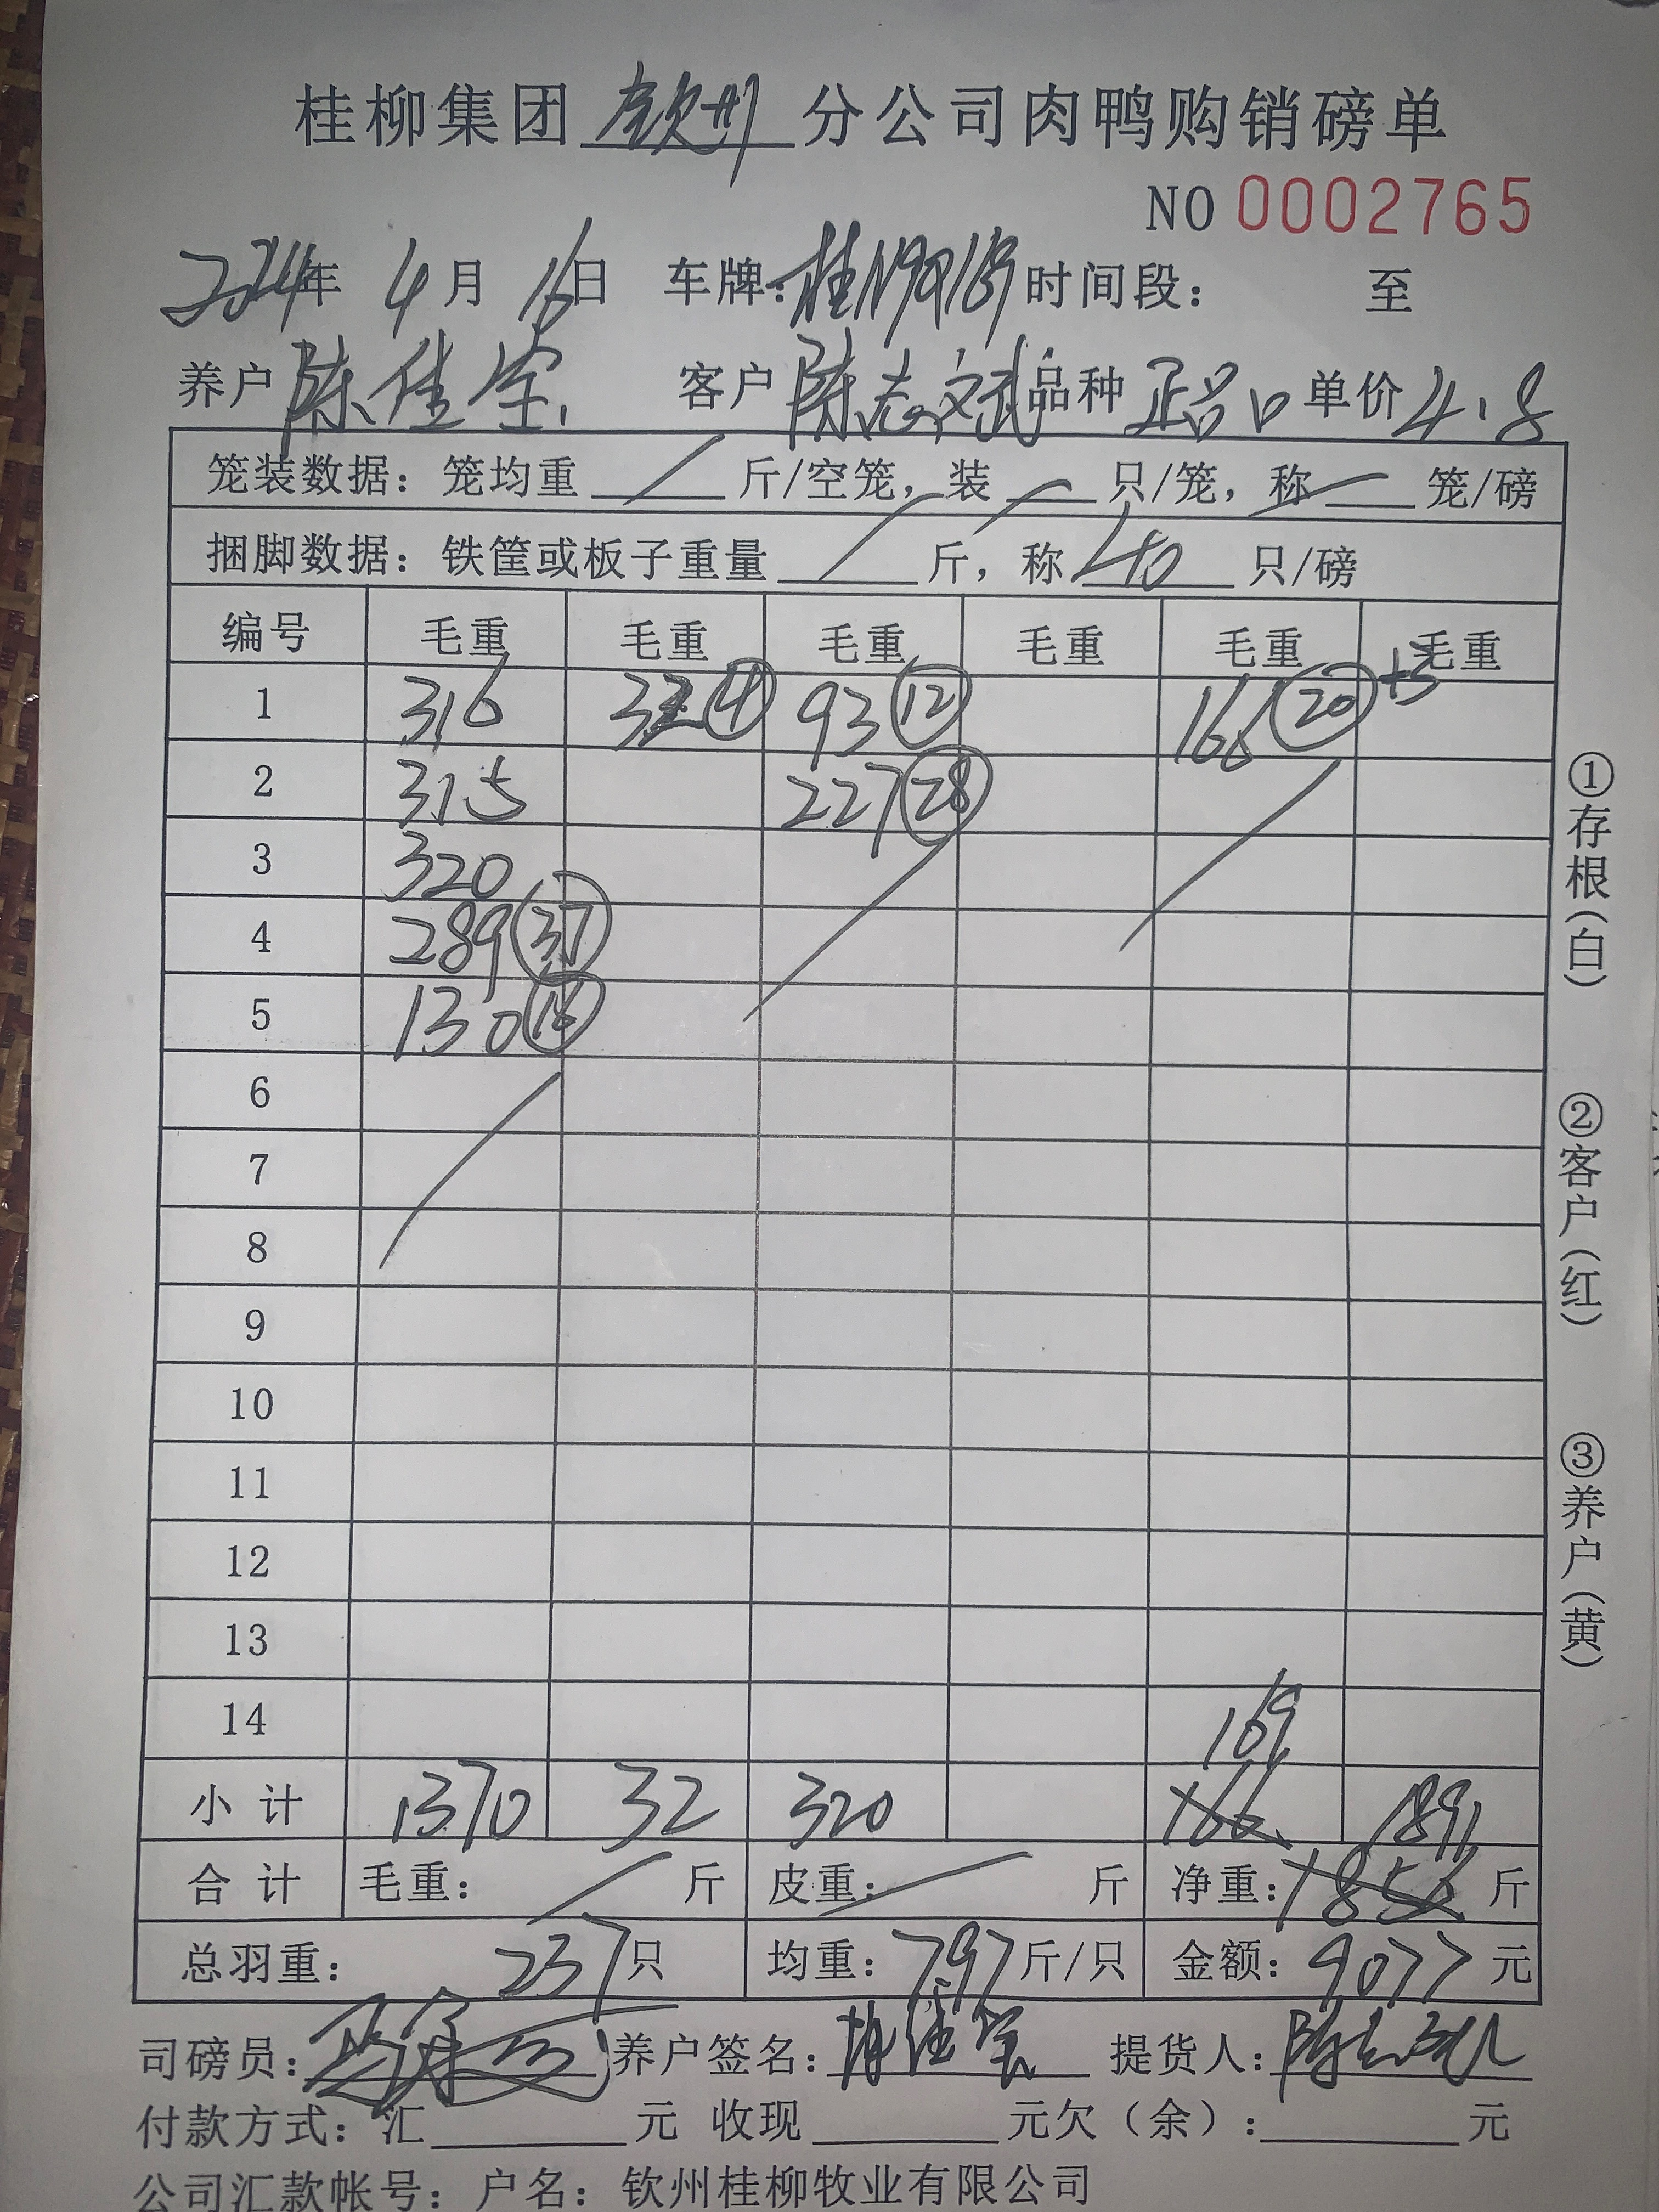 桂柳集团 钦州 分公司肉鸭购销磅单
NO 0002765
2024年 4月 16日 车牌: 时间段: 至
养户 陈佳宝 客户 陈志斌 品种 正品 单价 4.8
笼装数据: 笼均重 斤/空笼, 装 只/笼, 称 笼/磅
捆脚数据: 铁筐或板子重量 斤, 称 40 只/磅
编号 毛重 毛重 毛重 毛重 毛重 毛重
1 316 32 ④ 93 ⑫ 166 ⑳ +3
2 315 227 ㉘
3 320
4 289 ㊲
5 130
6
7
8
9
10
11
12
13
14 169
小计 1370 32 320 166 1891
合计 毛重: 斤 皮重: 斤 净重: 185 斤
总羽重: 237只 均重: 7.97斤/只 金额: 9077元
司磅员: 养户签名: 陈佳宝 提货人: 陈志斌
付款方式: 汇 元 收现 元欠(余): 元
公司汇款帐号: 户名: 钦州桂柳牧业有限公司
①存根(白)
②客户(红)
③养户(黄)